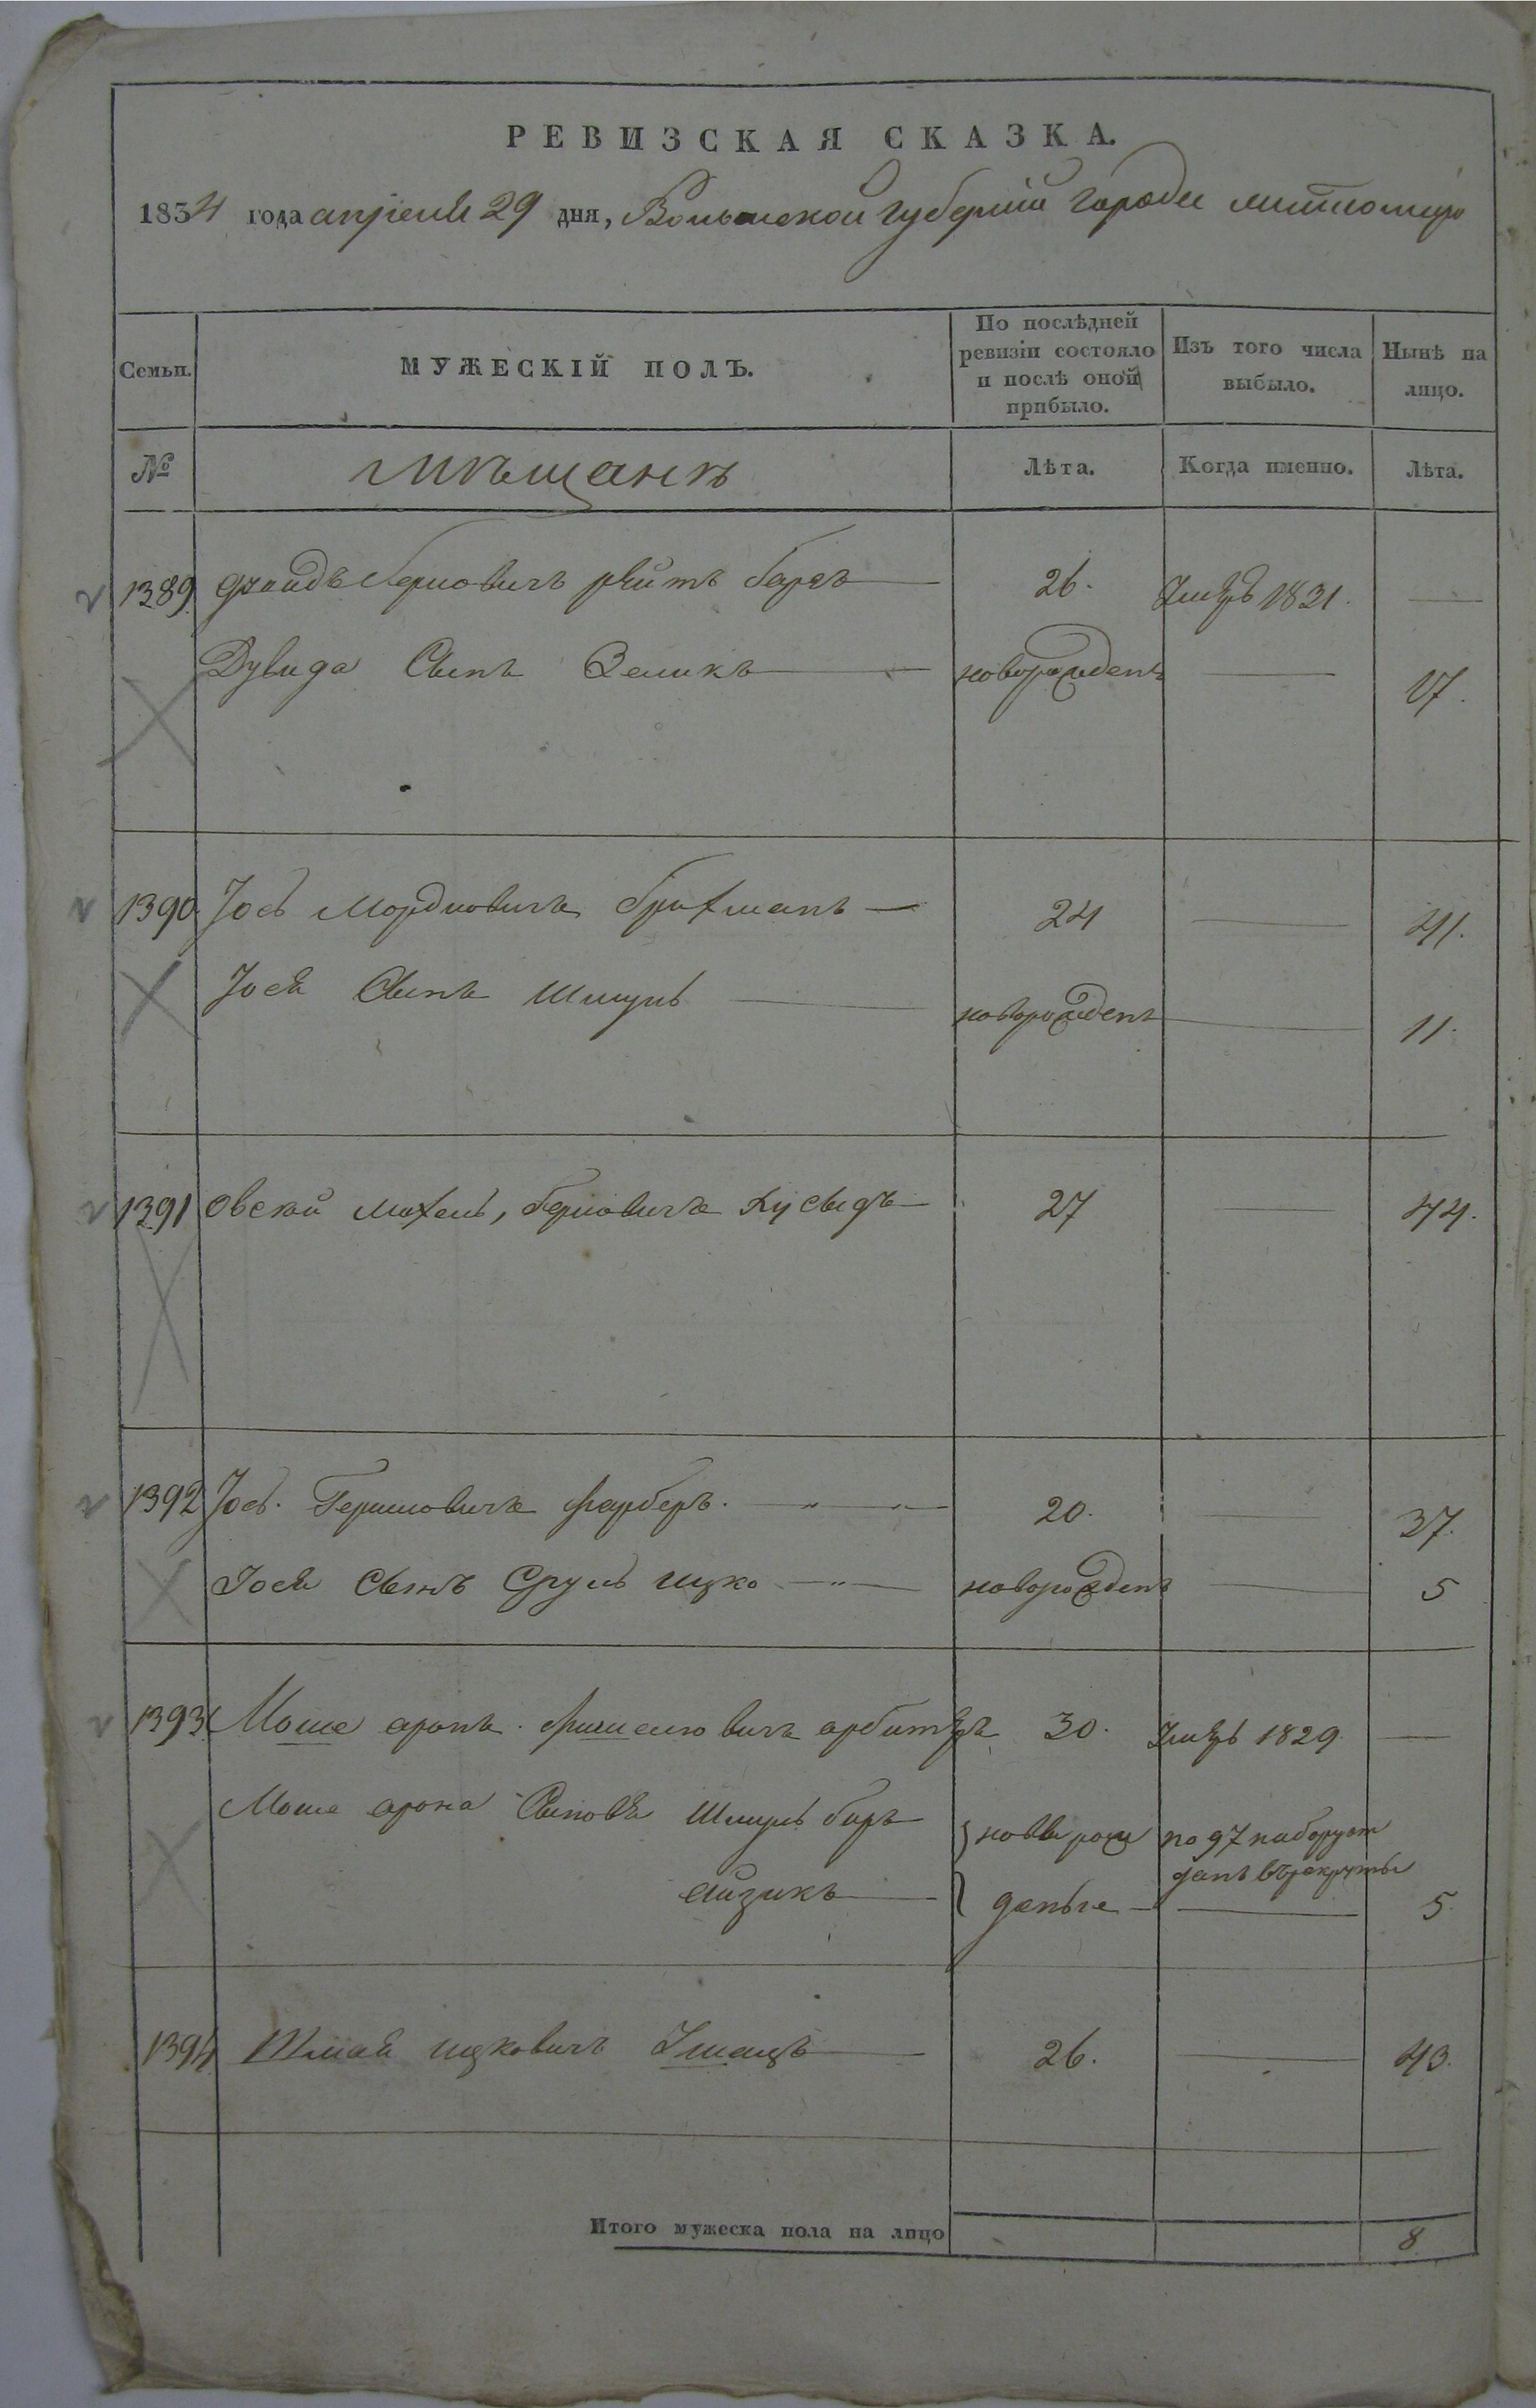 РЕВИЗСКАЯ СКАЗКА.
1834 года апреля 29 дня, Волынской губернии города життомира
Семьи. МУЖЕСКІЙ ПОЛЪ. По послѣдней ревизіи состояло и послѣ оной прибыло. Изъ того числа выбыло. Нынѣ на лицо.
№ мѣщанъ Лѣта. Когда именно. Лѣта.
1389 Берковичъ 26. умеръ 1831.
Дувида Сынъ Зеликъ новорожденъ 17.
1390 Іосъ Мордковичъ 24 41.
Іося Сынъ Шмуль новорожденъ 11.
1391 Овсей Берковичъ 27 44.
1392 Іось. Гершковичъ фарберъ. 20. 37.
Іося Сынъ Сруль ицко новорожденъ 5
1393 Моше аронъ 30. умеръ 1829
Моше арона Сыновя Шмуль беръ новорож по 97 набору отданъ въ рекруты
айзикъ деные 5.
1394 ицковичъ 26. 43.
Итого мужеска пола на лицо 8